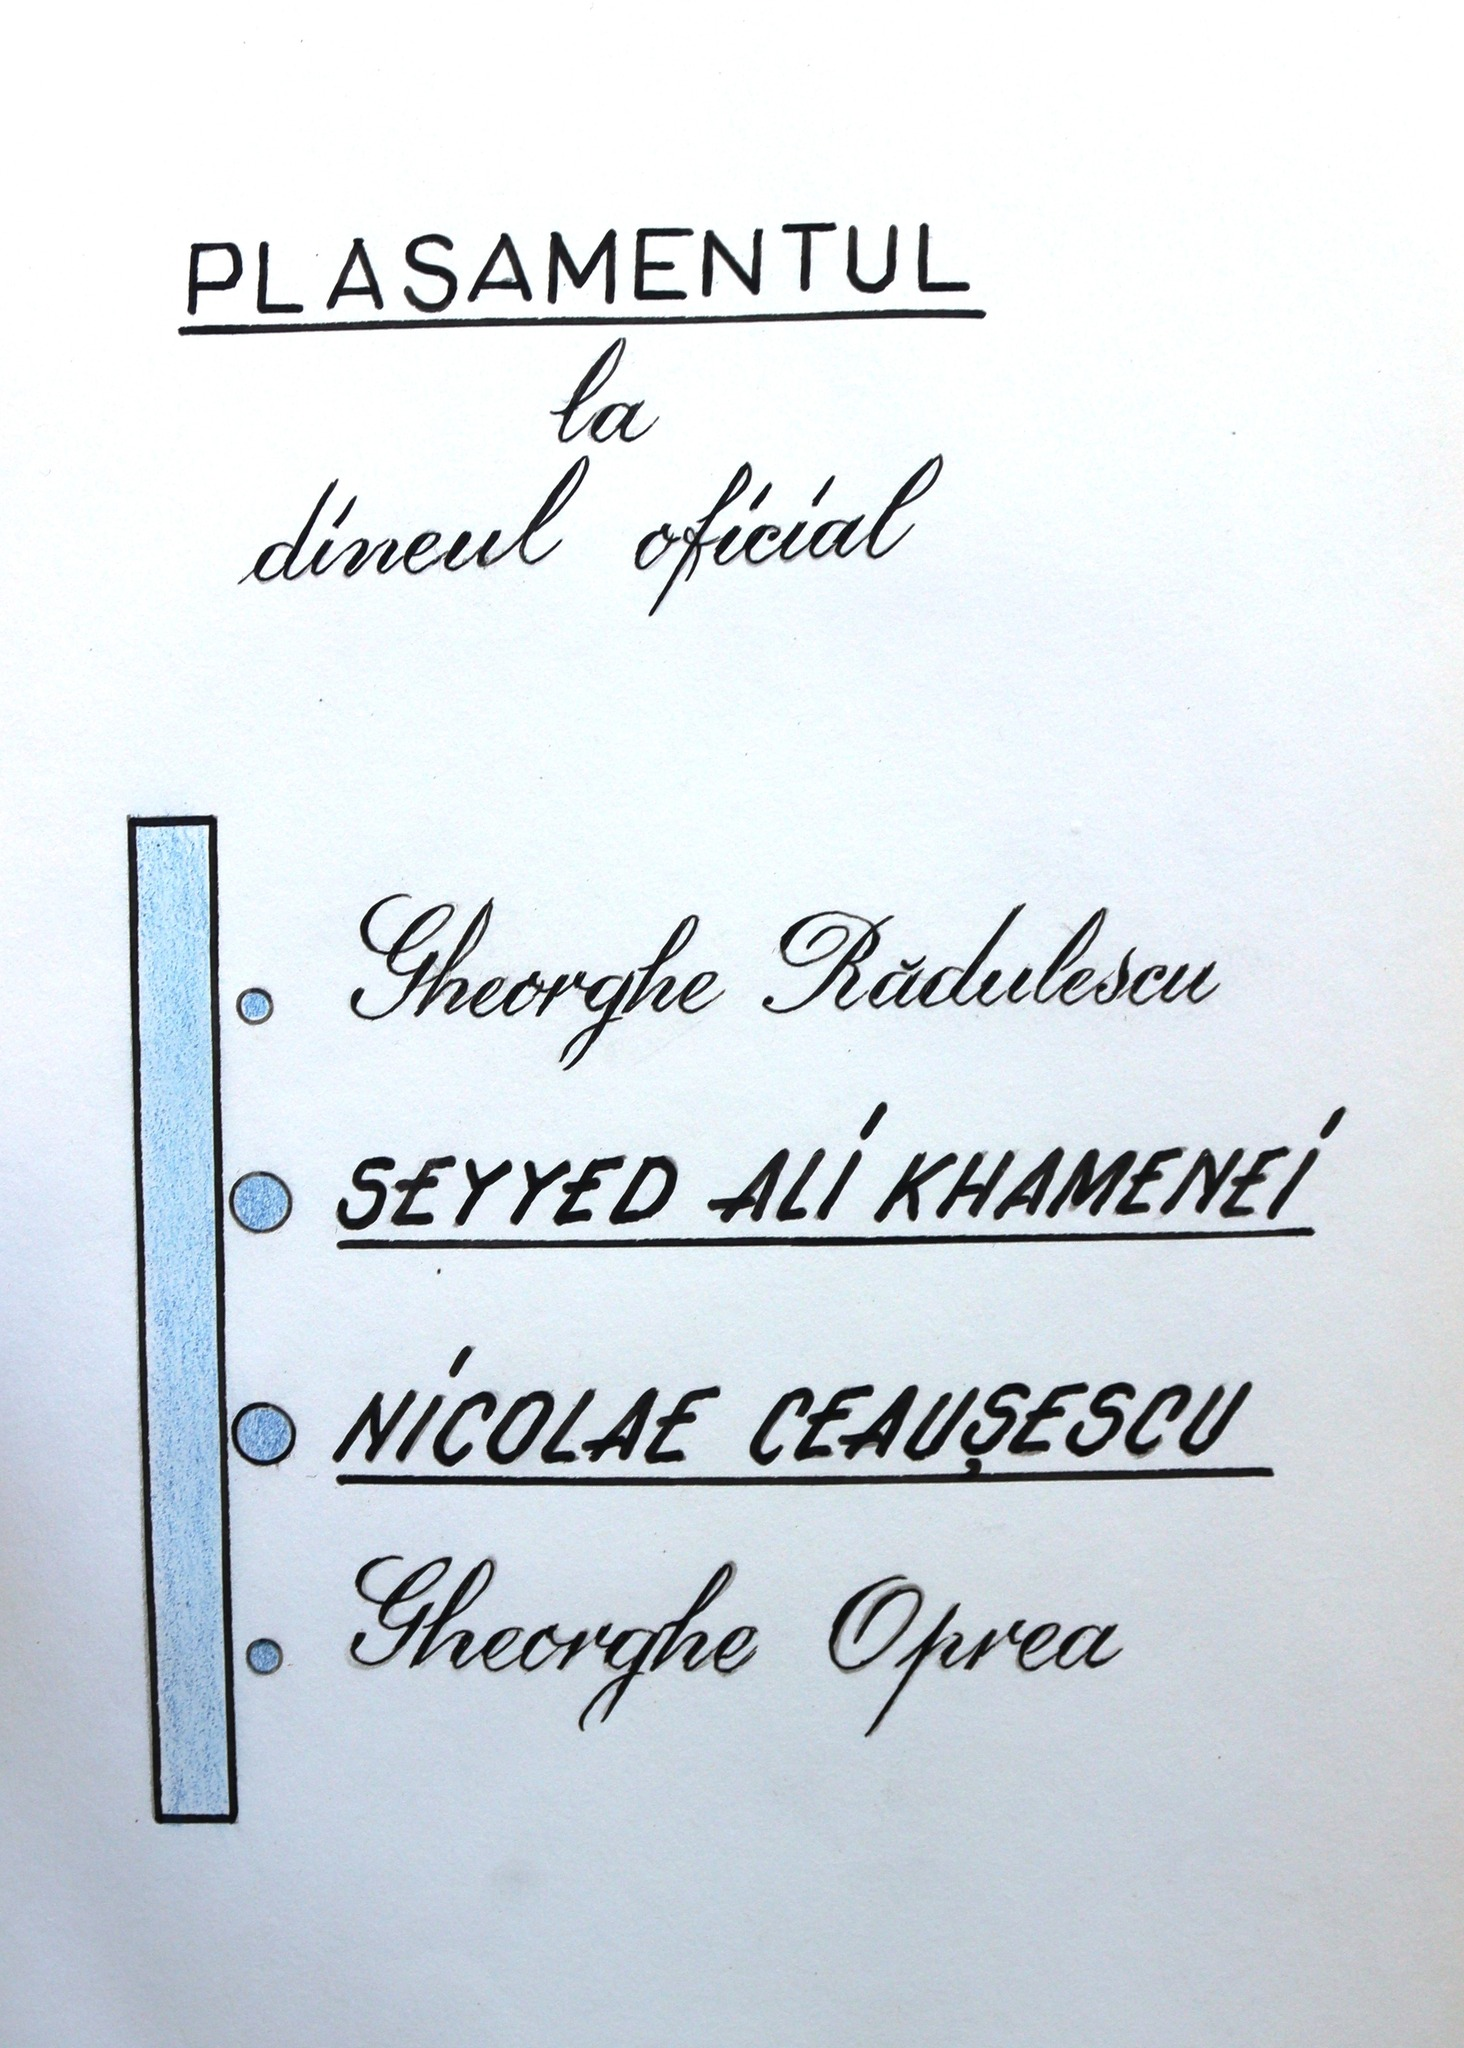 PLASAMENTUL
la
dineul oficial
Gheorghe Rădulescu
SEYYED ALI KHAMENEI
NICOLAE CEAUȘESCU
Gheorghe Oprea